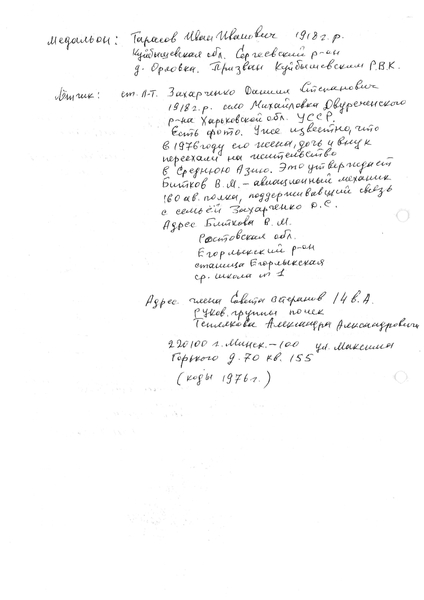 Медальон: Тарасов Иван Иванович 1918 г.р.
Куйбышевская обл. Сергеевский р-он
д. Орловка. Призван Куйбышевским Р.В.К.
Лётчик: ст. л-т. Захарченко Даниил Степанович
1918 г.р. село Михайловка Двуреченского
р-на Харьковской обл. УССР.
Есть фото. Уже известно, что
в 1976 году его жена, дочь и внук
переехали на жительство
в Среднюю Азию. Это утверждает
Битков В.М. – авиационный механик
160 ав. полка, поддерживавший связь
с семьёй Захарченко Д.С.
Адрес Биткова В.М.
Ростовская обл.
Егорлыкский р-он
станица Егорлыкская
ср. школа № 1
Адрес члена Совета ветеранов 14 в.А.
Руков. группы поиск
Теплякова Александра Александровича
220100 г. Минск – 100 ул. Максима
Горького д. 70 кв. 155
(коды 1976 г.)